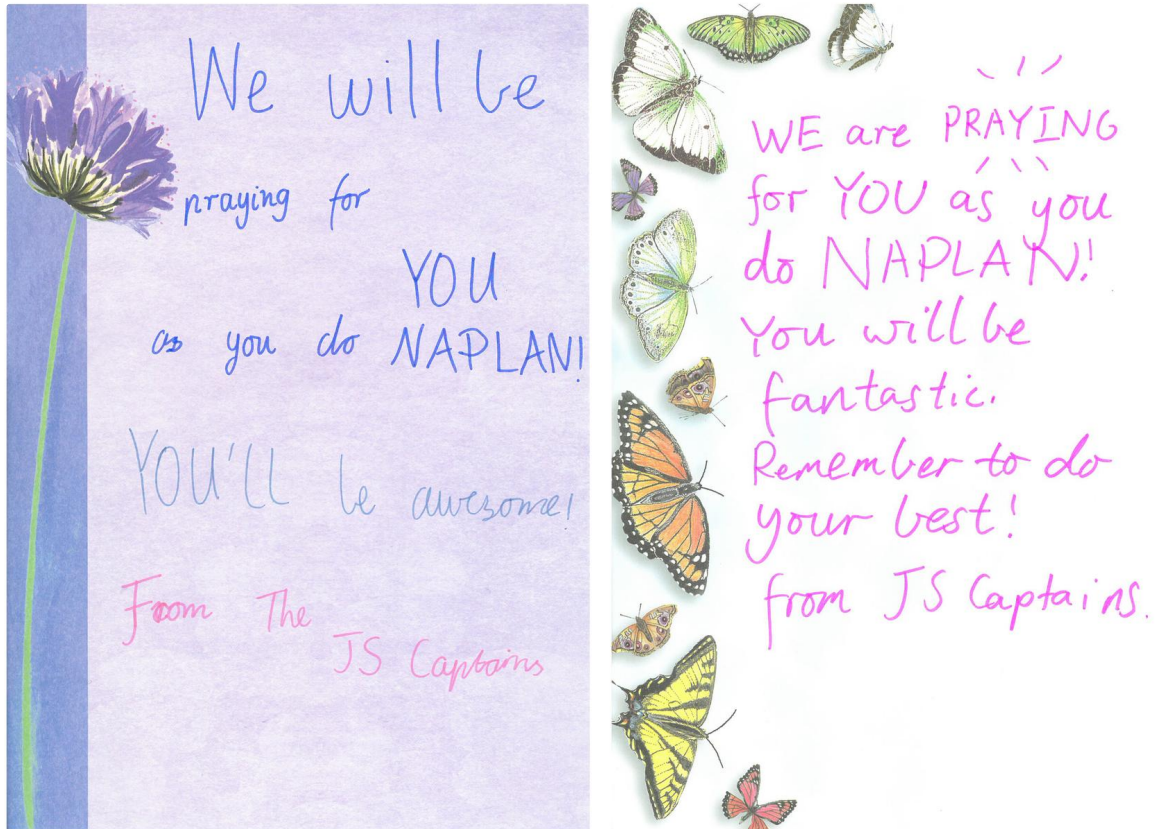 We will be
praying for
YOU
as you do NAPLAN!
YOU'LL be awesome!
From The
JS Captains
WE are PRAYING
for YOU as you
do NAPLAN!
You will be
fantastic.
Remember to do
your best!
from JS Captains.